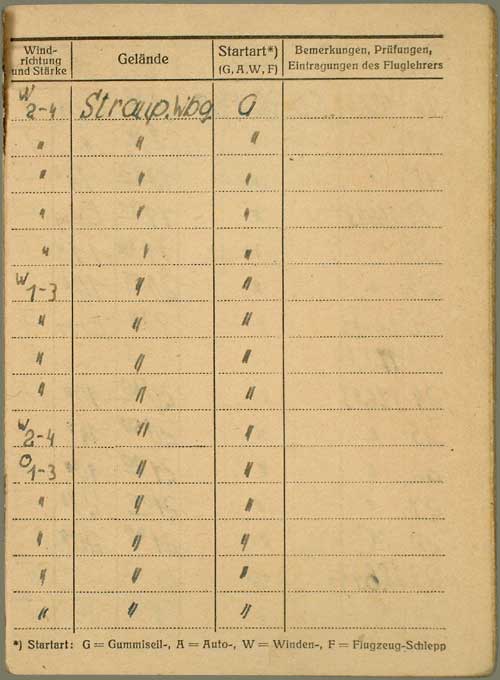 Wind-
richtung
und Stärke Gelände Startart*)
(G, A, W, F) Bemerkungen, Prüfungen,
Eintragungen des Fluglehrers
W
2-4 Straup. Wbg G
" " "
" " "
" " "
" " "
W
1-3 " "
" " "
" " "
" " "
W
2-4 " "
O
1-3 " "
" " "
" " "
" " "
" " "
*) Startart: G = Gummiseil-, A = Auto-, W = Winden-, F = Flugzeug-Schlepp